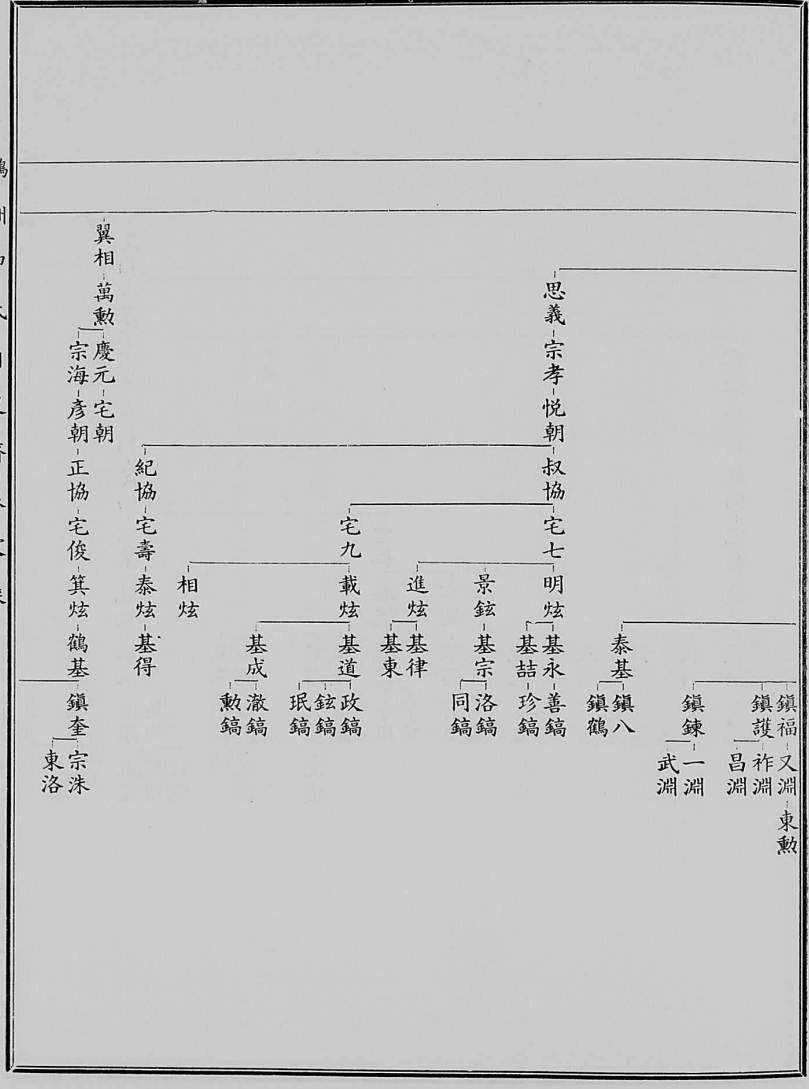 鎮福 又淵 東勳
鎮護 祚淵
昌淵
鎮鍊 一淵
武淵
泰基 鎮八
鎮鶴
思義 宗孝 悅朝 叔協 宅七 明炫 基永 善鎬
基喆 珍鎬
景鉉 基宗 洛鎬
同鎬
進炫 基律
基東
宅九 載炫 基道 政鎬
鉉鎬
珉鎬
基成 澈鎬
勳鎬
相炫
紀協 宅壽 泰炫 基得
翼相 萬勳 慶元 宅朝
宗海 彥朝 正協 宅俊 箕炫 鶴基 鎮奎 宗洙
東洛